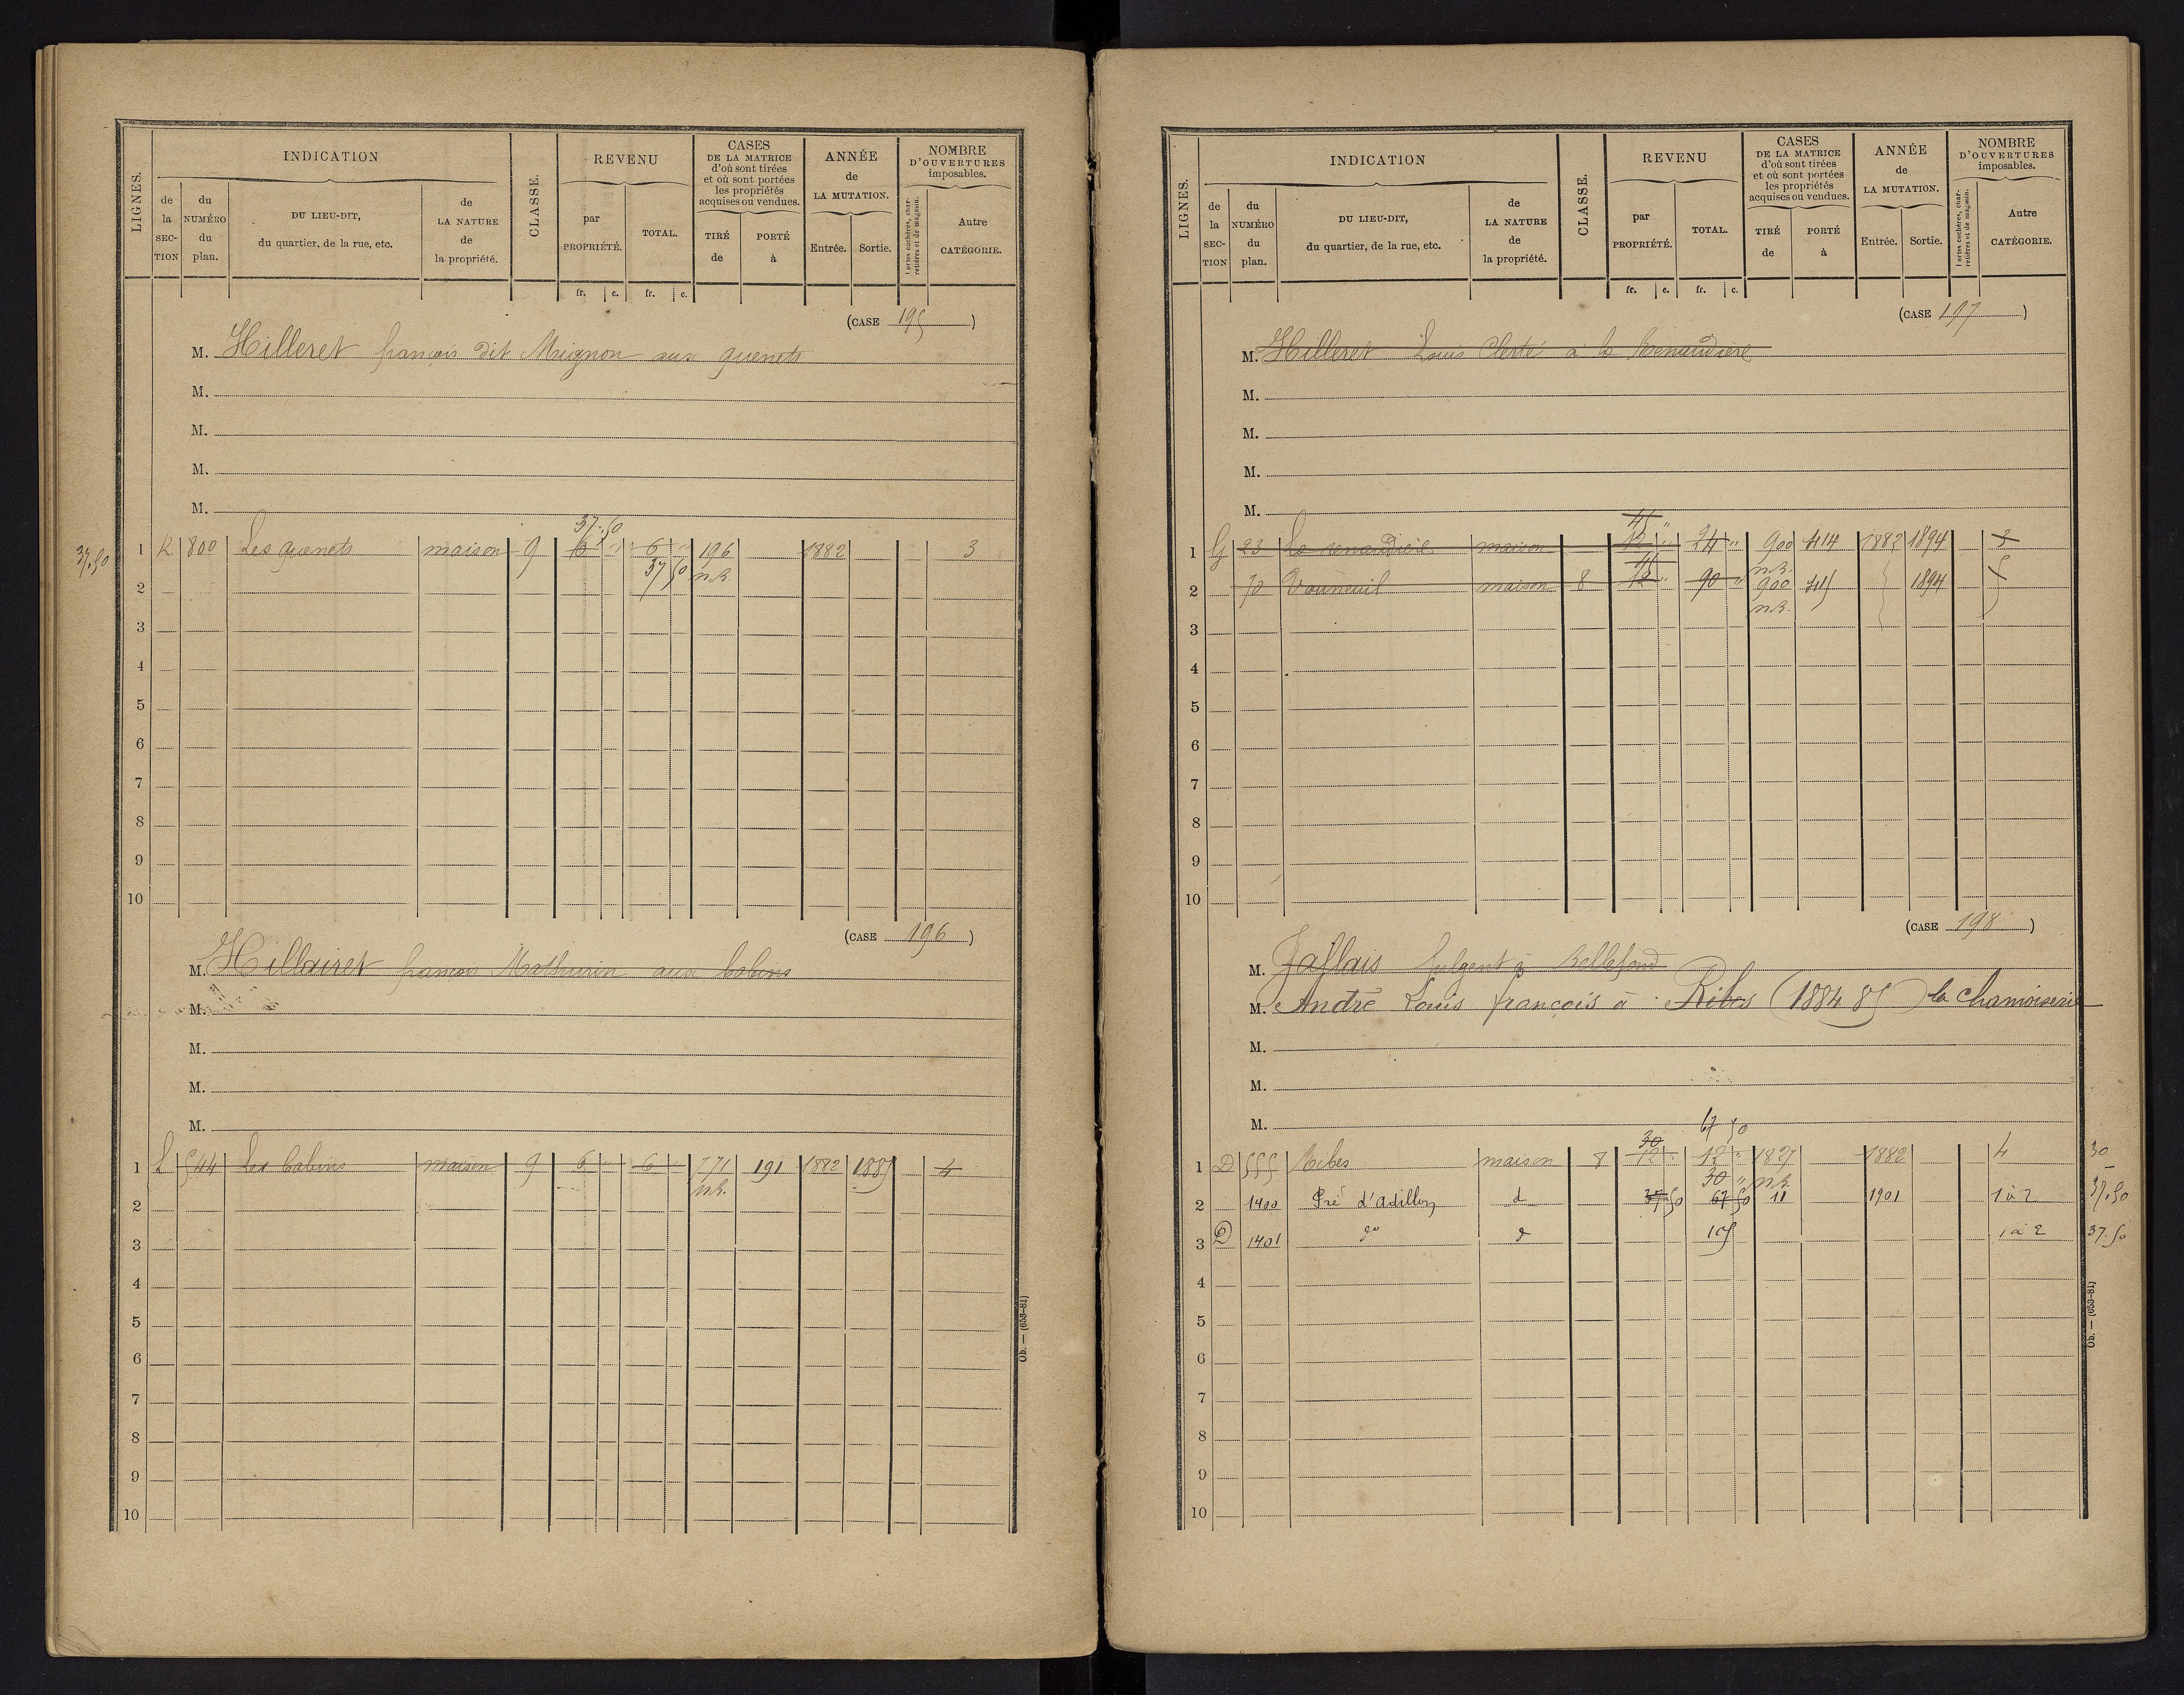 LIGNES.
INDICATION
de la SECTION
du NUMÉRO du plan.
DU LIEU-DIT, du quartier, de la rue, etc.
de LA NATURE de la propriété.
CLASSE.
REVENU
par PROPRIÉTÉ.
TOTAL.
fr. c. fr. c.
CASES DE LA MATRICE d'où sont tirées et où sont portées les propriétés acquises ou vendues.
TIRÉ de
PORTÉ à
ANNÉE de LA MUTATION.
Entrée. Sortie.
NOMBRE D'OUVERTURES imposables.
Portes cochères, charretières et de magasin.
Autre CATÉGORIE.
(CASE 195)
M. Hilleret françois dit Mignon aux quenets
M.
M.
M.
M.
37.50
37.50 1 K 800 Les quenets maison 9 6 " 6 " 196 1882 3
37 50 n.R.
2
3
4
5
6
7
8
9
10
(CASE 196)
M. Hillairet françois Mathurin aux babins
M.
M.
M.
M.
1 L 544 Les babins maison 9 6 " 6 " 771 191 1882 1885 4
n.R.
2
3
4
5
6
7
8
9
10
Ob. — (653-81)
LIGNES.
INDICATION
de la SECTION
du NUMÉRO du plan.
DU LIEU-DIT, du quartier, de la rue, etc.
de LA NATURE de la propriété.
CLASSE.
REVENU
par PROPRIÉTÉ.
TOTAL.
fr. c. fr. c.
CASES DE LA MATRICE d'où sont tirées et où sont portées les propriétés acquises ou vendues.
TIRÉ de
PORTÉ à
ANNÉE de LA MUTATION.
Entrée. Sortie.
NOMBRE D'OUVERTURES imposables.
Portes cochères, charretières et de magasin.
Autre CATÉGORIE.
(CASE 197)
M. Hilleret Louis Clerté à la Renaudière
M.
M.
M.
M.
45 "
1 G 23 La renaudière maison 12 " 24 " 900 414 1882 1894
45 n.R.
2 70 Vouneuil maison 8 12 " 90 " 900 415 1894
n.R.
3
4
5
6
7
8
9
10
(CASE 198)
M. Jallais fulgent à bellefond
M. André Louis françois à Ribes (1884 85) la chamoiserie
M.
M.
M.
67 50
30
1 D 555 Ribes maison 8 12 " 12 " 1827 1882 4 30
30 " n.R.
2 1400 Pré d'adillon d 37 50 67 50 11 1901 1 à 2 37.50
3 D 1401 do d 105 1 à 2 37.50
4
5
6
7
8
9
10
Ob. — (653-81)